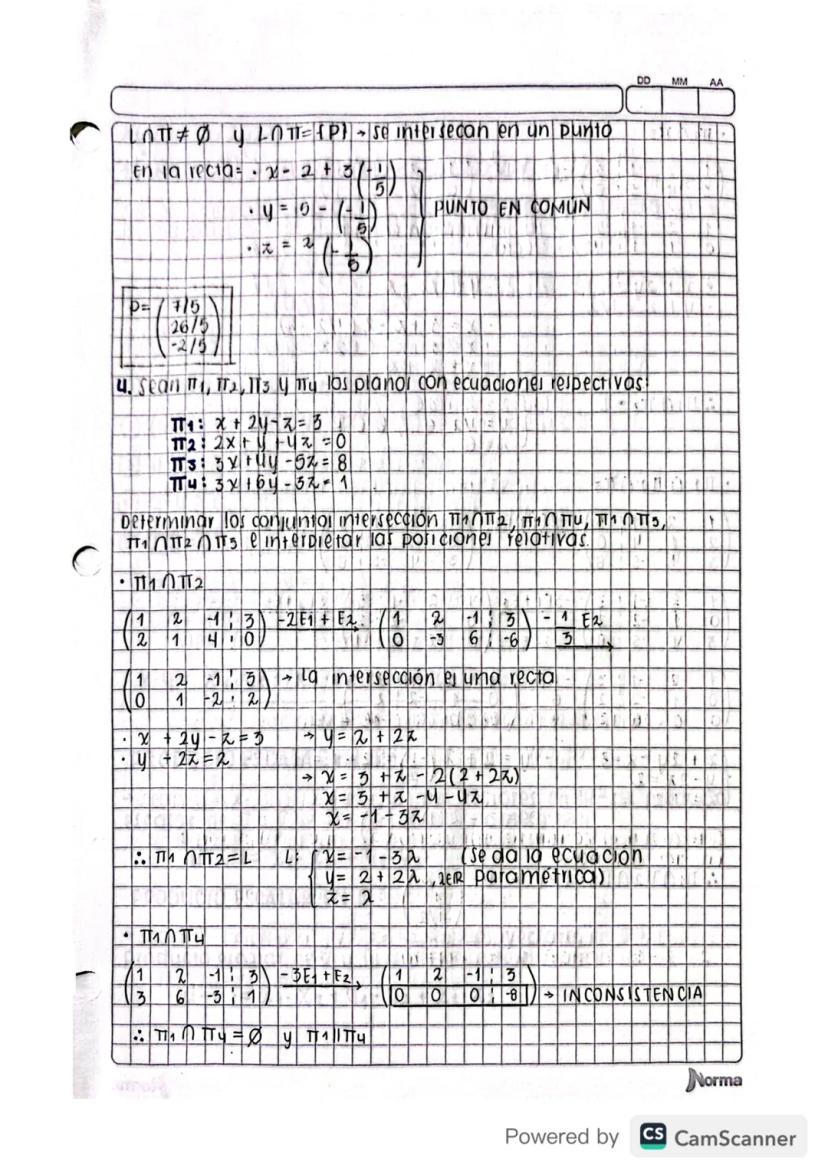 DD MM AA
L∩π≠∅ y L∩π={P} → se intersecan en un punto
En la recta: · x = 2 + 3(-1/5)
· y = 5 - (-1/5) PUNTO EN COMÚN
· z = 2 (-1/5)
P= (7/5
26/5
-2/5)
4. Sean π1, π2, π3 y π4 los planos con ecuaciones respectivas:
π1: x + 2y - z = 3
π2: 2x + y + 4z = 0
π3: 3x + 4y - 5z = 8
π4: 3x + 6y - 3z = 1
Determinar los conjuntos intersección π1∩π2, π1∩π4, π1∩π3,
π1∩π2∩π3 e interpretar las posiciones relativas.
· π1∩π2
(1 2 -1 ¦ 3) -2E1 + E2 (1 2 -1 ¦ 3) -1/3 E2
(2 1 4 ¦ 0) (0 -3 6 ¦ -6)
(1 2 -1 ¦ 3) → La intersección es una recta
(0 1 -2 ¦ 2)
· x + 2y - z = 3 → y = 2 + 2z
· y - 2z = 2
→ x = 3 + z - 2(2 + 2z)
x = 3 + z - 4 - 4z
x = -1 - 3z
∴ π1∩π2 = L L: { x = -1 - 3λ (Se da la ecuación
y = 2 + 2λ , λ∈ℝ paramétrica)
z = λ
· π1∩π4
(1 2 -1 ¦ 3) -3E1 + E2 (1 2 -1 ¦ 3)
(3 6 -3 ¦ 1) (0 0 0 ¦ -8) → INCONSISTENCIA
∴ π1∩π4 = ∅ y π1||π4
Norma
Powered by CS CamScanner